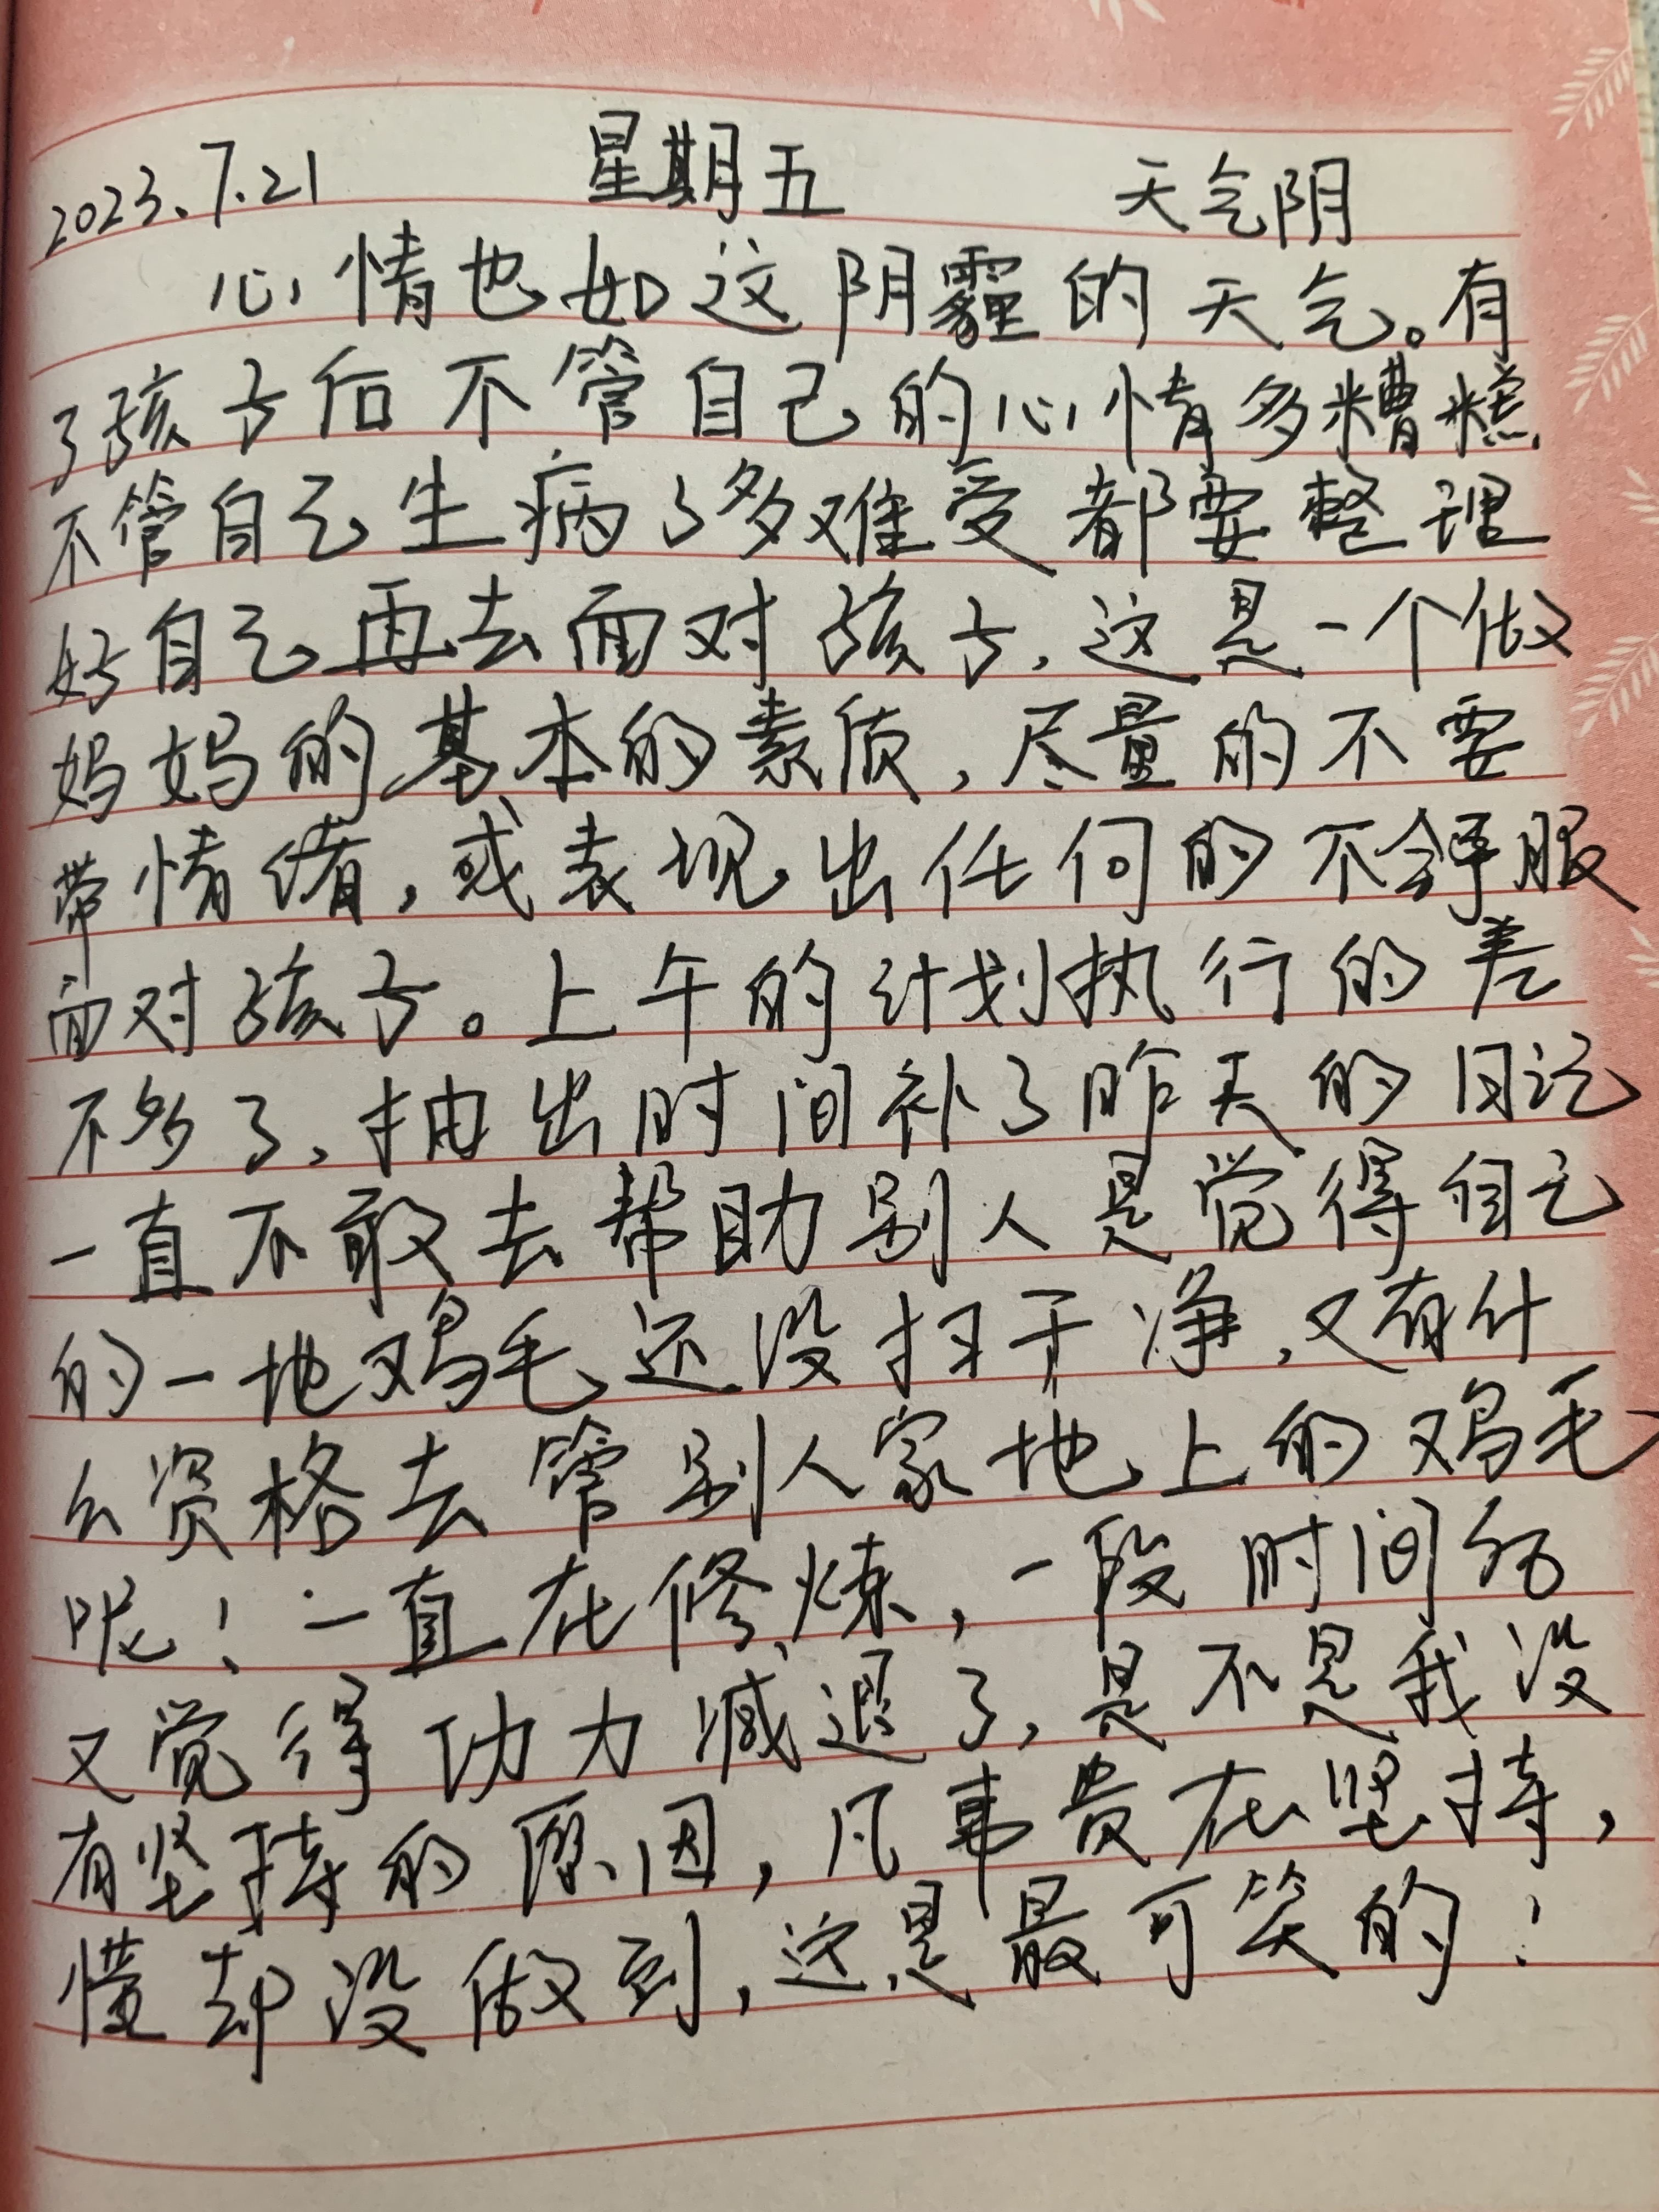 2023.7.21 星期五 天气阴
心情也如这阴霾的天气。有
了孩子后不管自己的心情多糟糕
不管自己生病了多难受都要整理
好自己再去面对孩子,这是一个做
妈妈的基本的素质,尽量的不要
带情绪,或表现出任何的不舒服
面对孩子。上午的计划执行的差
不多了,抽出时间补了昨天的日记
一直不敢去帮助别人是觉得自己
的一地鸡毛还没扫干净,又有什
么资格去管别人家地上的鸡毛
呢!一直在修炼,一段时间后
又觉得功力减退了,是不是我没
有坚持的原因,凡事贵在坚持,
懂却没做到,这是最可笑的!